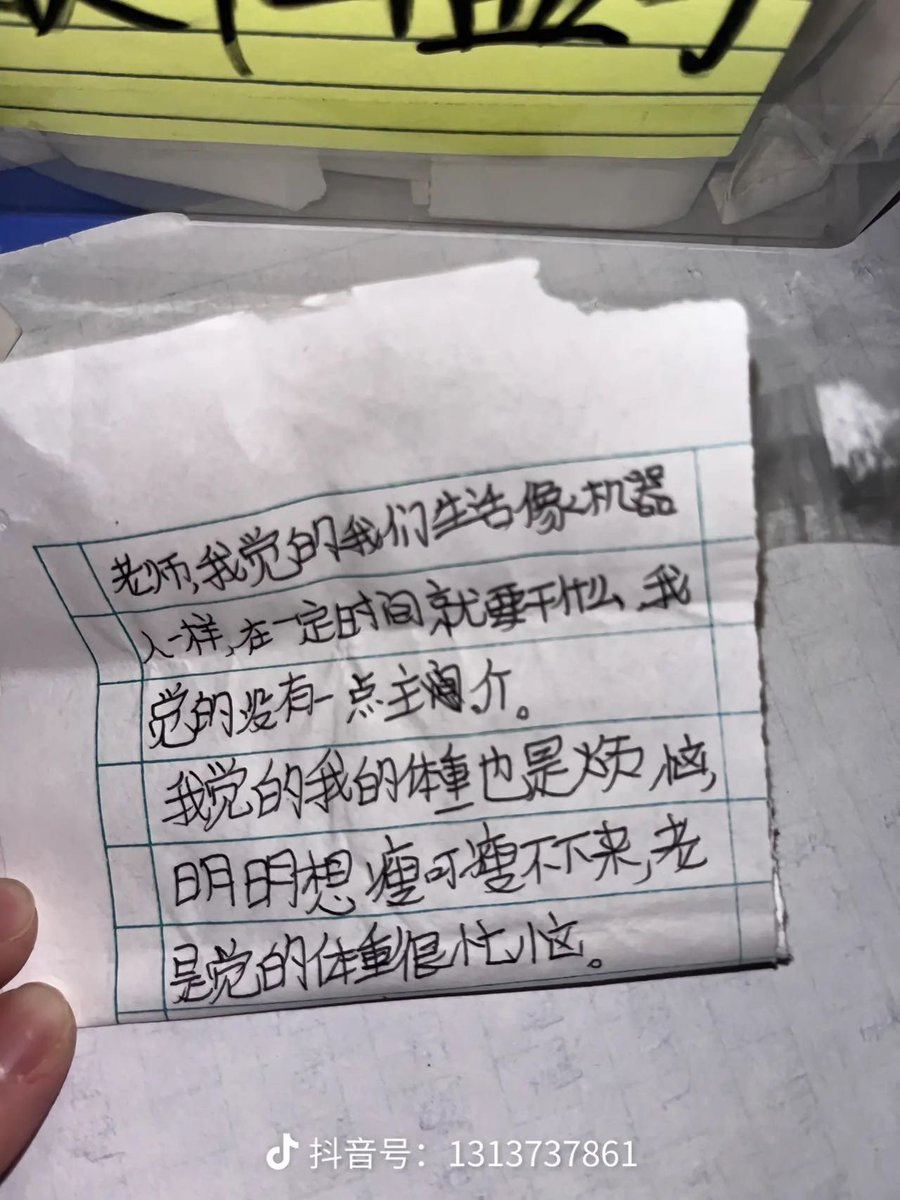 老师,我觉的我们生活像机器
人一样,在一定时间就要干什么,我
觉的没有一点主见。
我觉的我的体重也是烦恼,
明明想瘦可瘦不下来,老
是觉的体重很忙恼。
抖音号：1313737861